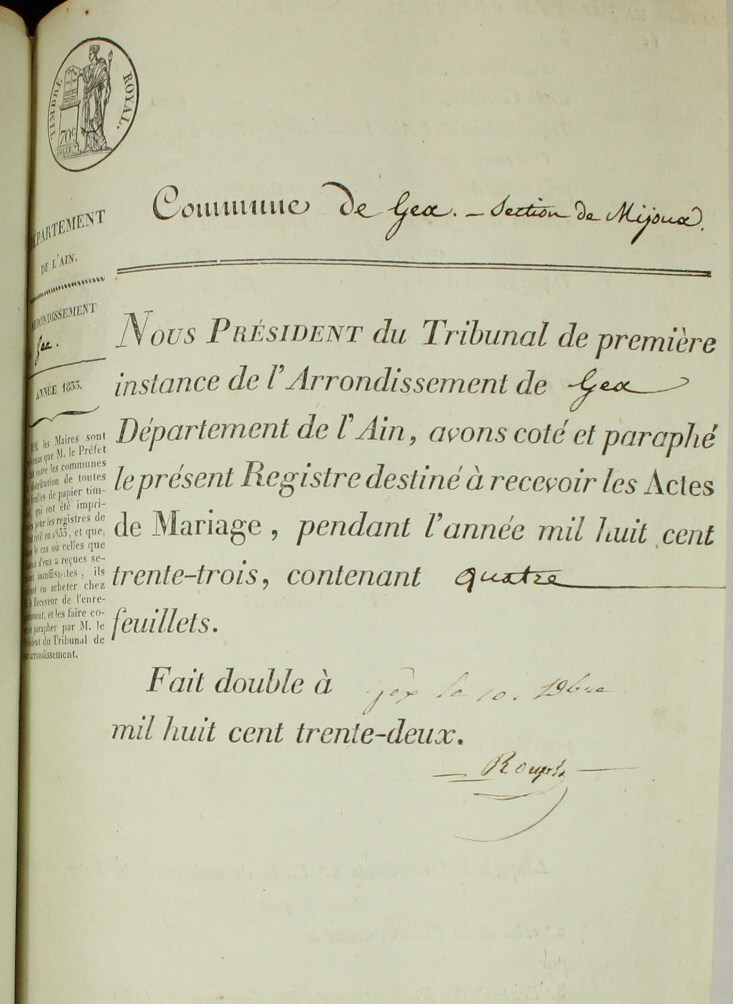 TIMBRE ROYAL.
70c
Commune de Gex. - Section de Mijoux.
DÉPARTEMENT
DE L'AIN.
ARRONDISSEMENT
Gex.
ANNÉE 1833.
MM. les Maires sont
que M. le Préfet
les communes
distribution de toutes
feuilles de papier tim-
qui ont été impri-
pour les registres de
civil en 1833, et que,
le cas où celles que
d'eux a reçues se-
insuffisantes, ils
en acheter chez
le Receveur de l'enre-
gistrement, et les faire co-
parapher par M. le
Président du Tribunal de
arrondissement.
NOUS PRÉSIDENT du Tribunal de première
instance de l'Arrondissement de Gex
Département de l'Ain, avons coté et paraphé
le présent Registre destiné à recevoir les Actes
de Mariage, pendant l'année mil huit cent
trente-trois, contenant quatre
feuillets.
Fait double à Gex le 10. Xbre
mil huit cent trente-deux.